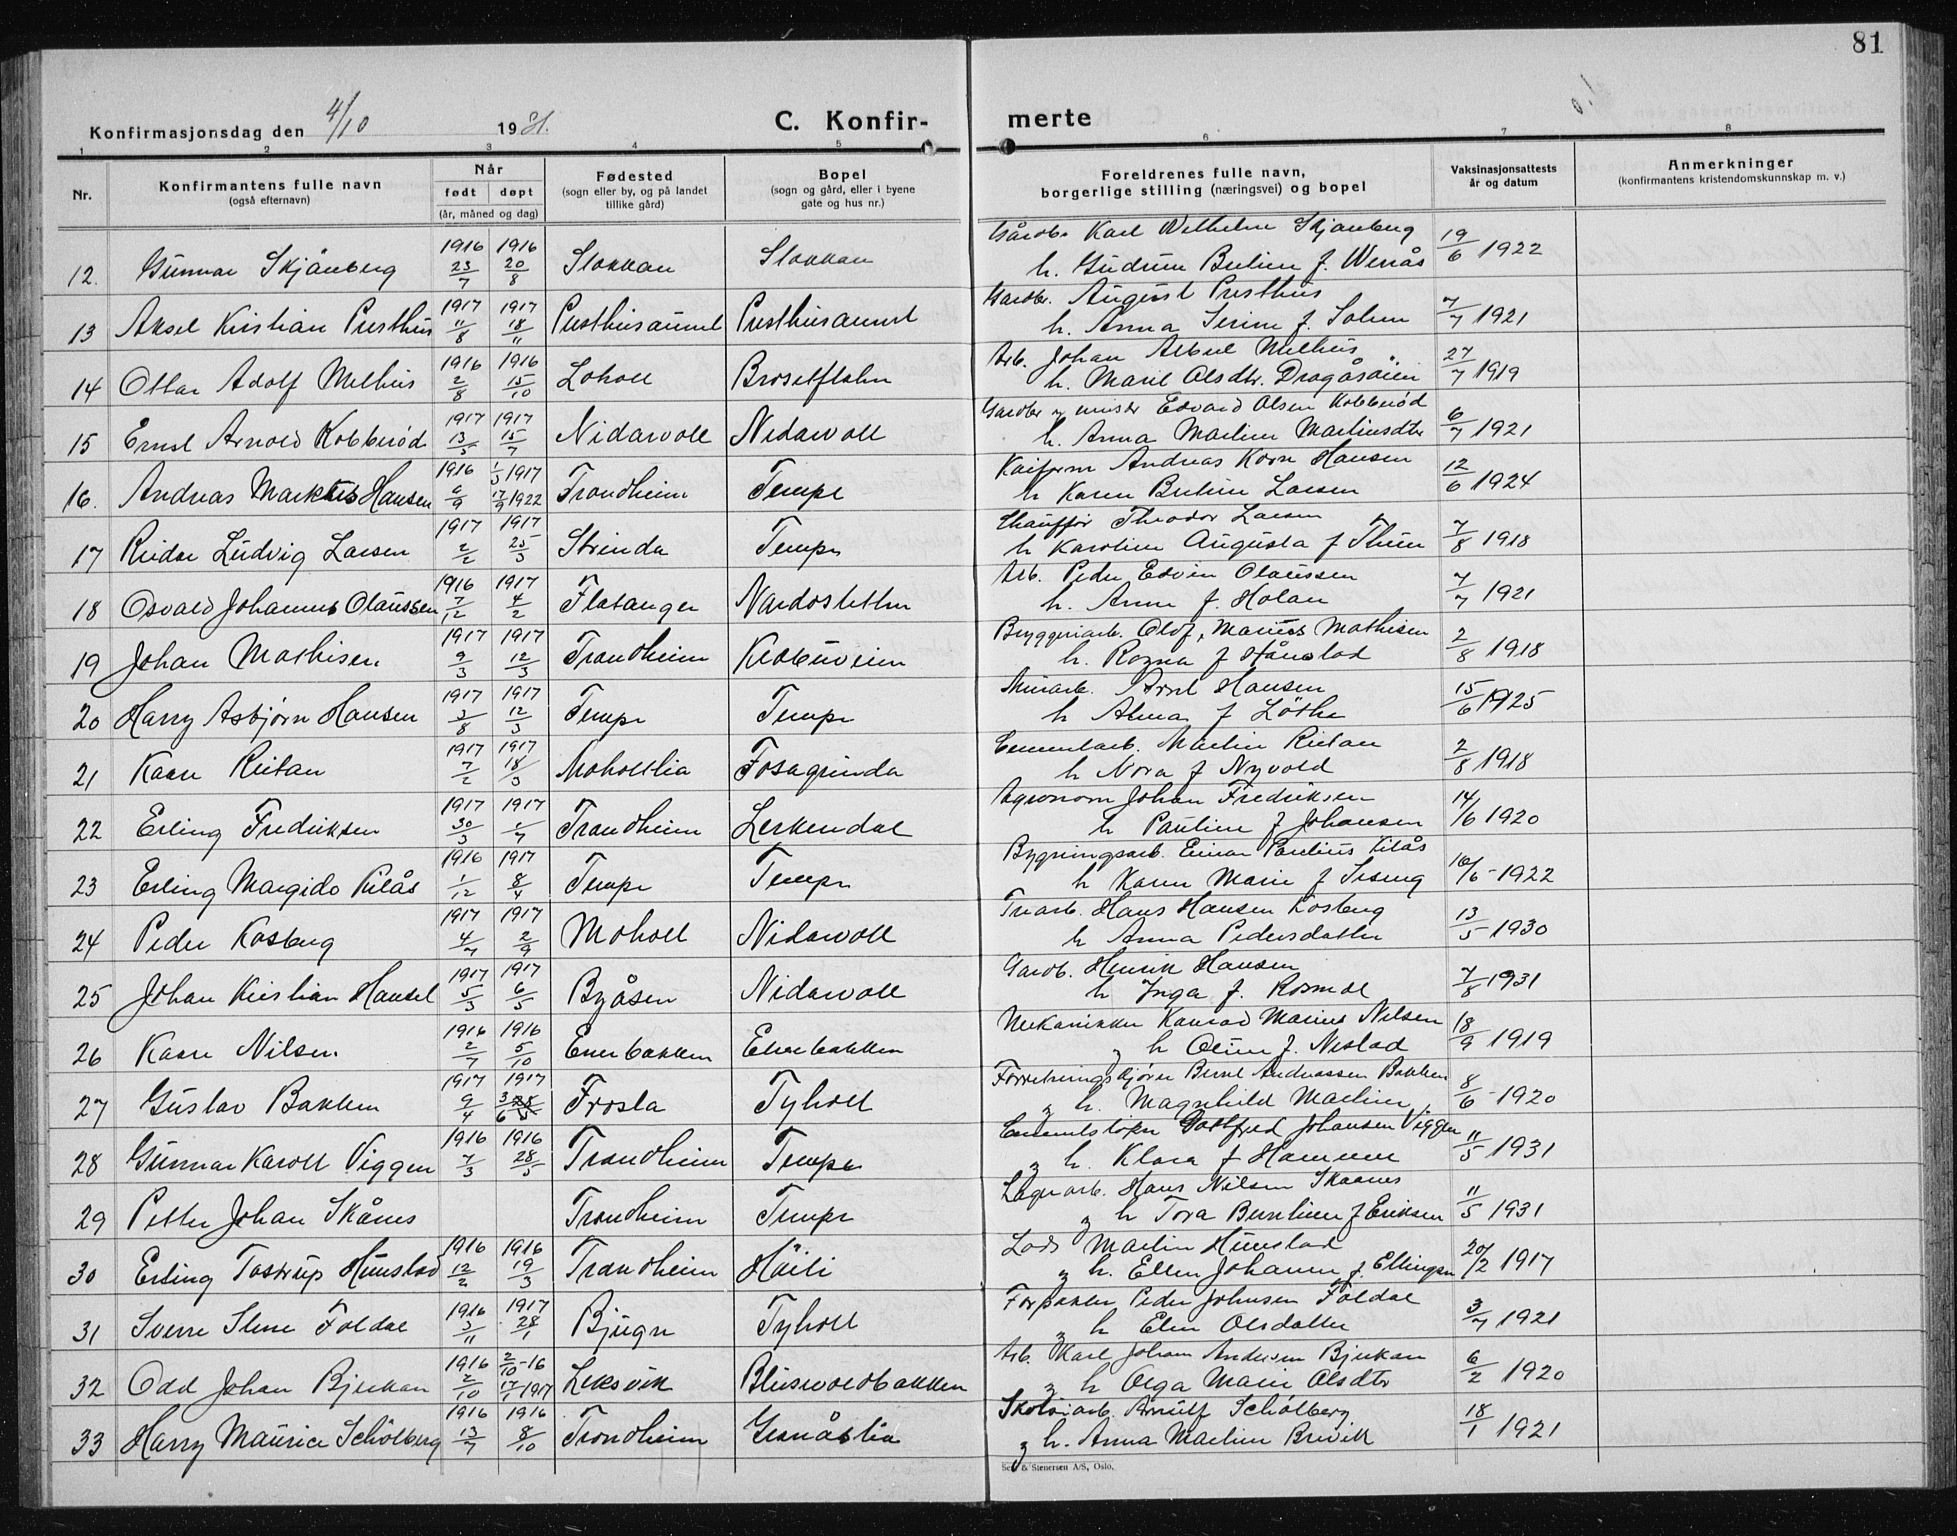 81
Konfirmasjonsdag den 4/10 1931.
C. Konfir-
merte
1 2 3 4 5 6 7 8
Nr.
Konfirmantens fulle navn
(også efternavn)
Når
født døpt
(år, måned og dag)
Fødested
(sogn eller by, og på landet
tillike gård)
Bopel
(sogn og gård, eller i byene
gate og hus nr.)
Foreldrenes fulle navn,
borgerlige stilling (næringsvei) og bopel
Vaksinasjonsattests
år og datum
Anmerkninger
(konfirmantens kristendomskunnskap m. v.)
12. Gunnar Skjånberg 1916 23/7 1916 20/8 Stokkan Stokkan
Gårdbr. Karl Wilhelm Skjanberg
h. Gudrun Beline f. Wernås 19/6 1922
13 Aksel Kristian Presthus 1917 11/8 1917 18/11 Presthusaunet Presthusaunet
Gardbr. August Presthus
h. Anna Serine f. Solem 7/7 1921
14 Ottar Adolf Melhus 1916 2/8 1916 15/10 Loholt Brosetflaten
Arb. Johan Melhus
h. Marit Olsdtr. Dragåsøien 27/7 1919
15 Ernst Arnold Kobberød 1917 13/5 1917 15/7 Nidarvoll Nidarvoll
Gardbr Edvard Olsen Kobberød
h. Anna Martine Martinsdtr 6/7 1921
16. Andreas Markus Hansen 1916 6/9 1/3 1917 17/9 1922 Trondheim Tempe
Andreas Korn Hansen
h Karen Beline Larsen 12/6 1924
17 Reidar Ludvig Larsen 1917 2/2 1917 25/3 Strinda Tempe
Chauffør Theodor Larsen
h Karoline Augusta f Thun 7/8 1918
18 Osvald Johannes Olaussen 1916 7/12 1917 4/2 Flatanger Nardosletten
Arb. Peder Edvin Olaussen
h. Anne f. Holan 7/7 1921
19 Johan Mathisen 1917 9/3 1917 12/3 Trondheim Klæbuveien
Bryggeriarb. Olof, Marius Mathisen
h. Ragna f Hånstad 2/8 1918
20 Harry Asbjørn Hansen 1917 3/8 1917 12/3 Tempe Tempe
Murarb. Arnt Hansen
h Alma f Löthe 15/6 1925
21 Kaare Reitan 1917 7/2 1917 18/3 Moholtlia Fosagrinda
Cementarb. Martin Reitan
h Nora f Nyvold 2/8 1918
22 Erling Fredriksen 1917 30/3 1917 1/7 Trondheim Lerkendal
Agronom Johan Fredriksen
h Pauline f Johansen 14/6 1920
23 Erling Margido Lilås 1916 1/12 1917 8/4 Tempe Tempe
Bygningsarb. Einar Paulius Lilås
h Karen Marie f Seseng 16/6 - 1922
24 Peder Kosberg 1917 4/7 1917 2/9 Moholt Nidarvoll
Trearb. Hans Hansen Kosberg
h Anna Pedersdatter 13/5 1930
25 Johan Kristian Hansel 1917 5/3 1917 6/5 Byåsen Nidarvoll
Gardb. Henrik Hansen
h Inga f. Rosmæl 7/8 1931
26 Kaare Nilsen 1916 2/7 1916 5/10 Enerbakken Enerbakken
Mekaniker Konrad Marius Nilsen
g h Oline f. Nestad 18/9 1919
27 Gustav Bakken 1917 9/4 1917 3/6 Frosta Tyholt
Forretningskjører Bernt Andreassen Bakken
g h. Magnhild Martine 8/6 - 1920
28 Gunnar Karolt Viggen 1916 7/3 1916 28/5 Trondheim Tempe
Cementstøper Gottfred Johansen Viggen
g h. Klara f Hammer 11/5 1931
29 Petter Johan Skånes Trondheim Tempe
Lagerarb. Hans Nilsen Skaanes
g h Tora Berntine f Eriksen 11/5 1931
30 Erling Tostrup Hunstad 1916 12/2 1916 19/3 Trondheim Höili
Lods Martin Hunstad
g h. Ellen Johanne f. Ellingsen 20/2 1917
31 Sverre Stene Foldal 1916 3/11 1917 28/1 Bjugn Tyholt
Forpakter Peder Johnsen Foldal
g h Elen Olsdatter 3/7 1921
32 Odd Johan Bjerkan 1916 2/10 2/10-16 17/1 1917 Leksvik Blusuvoldbakken
Arb. Karl Johan Andersen Bjerkan
g h Olga Marie Olsdtr 6/2 1920
33 Harry Maurice Schölberg 1916 13/7 1916 8/10 Trondheim Granåslia
Skotøiarb. Arnulf Schölberg
g h. Anna Martine Brevik 18/1 1921
& Stenersen A/S, Oslo.